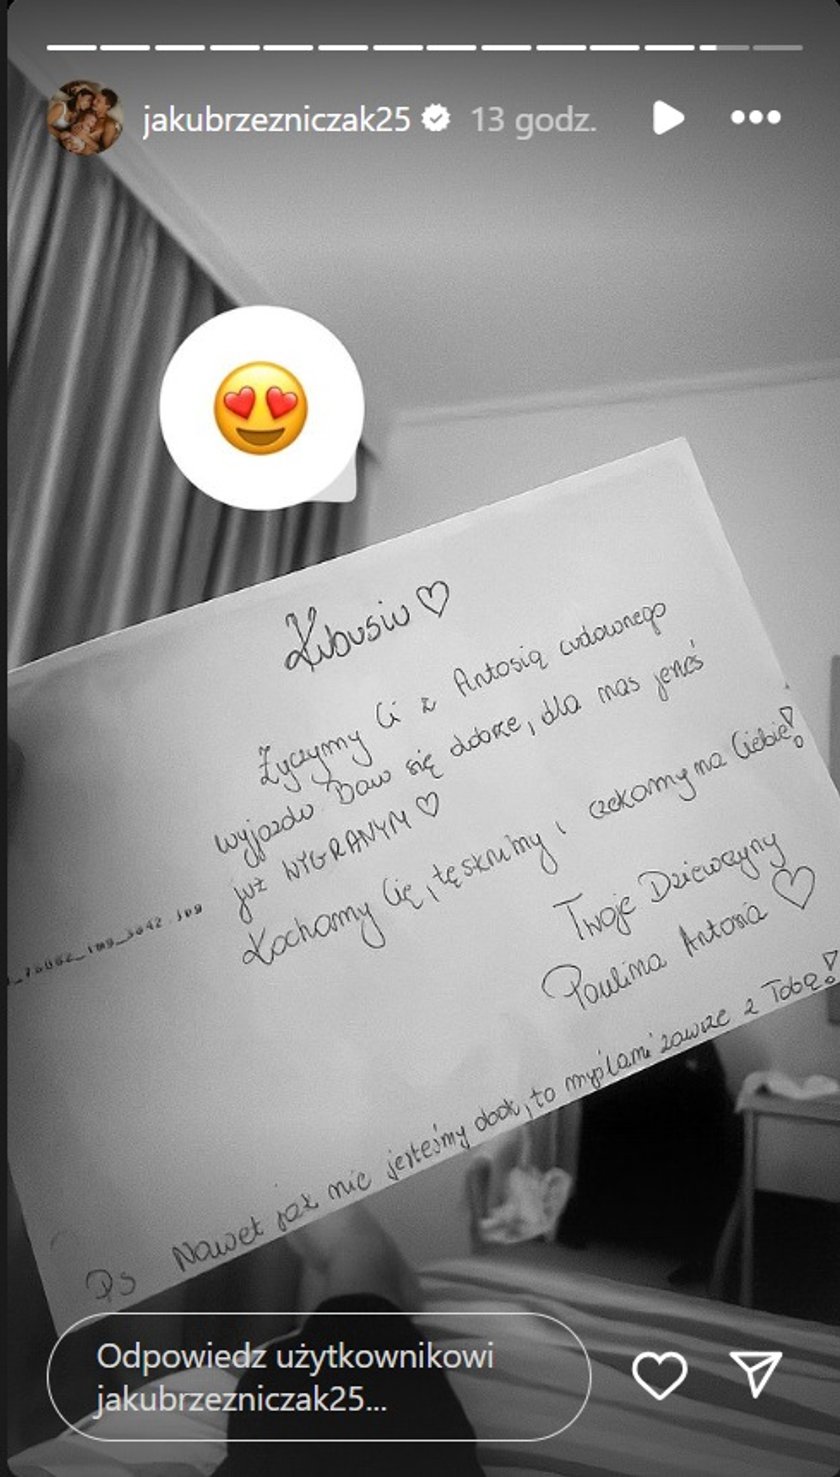 jakubrzezniczak25 13 godz.
Kubusiu ♡
Życzymy Ci z Antosią cudownego
wyjazdu Baw się dobrze, dla nas jesteś
już WYGRANYM ♡
Kochamy Cię, tęsknimy i czekamy na Ciebie!
Twoje Dziewczyny
Paulina Antosia ♡
Ps Nawet jak nie jesteśmy obok, to myślami zawsze z Tobą!
Odpowiedz użytkownikowi
jakubrzezniczak25...